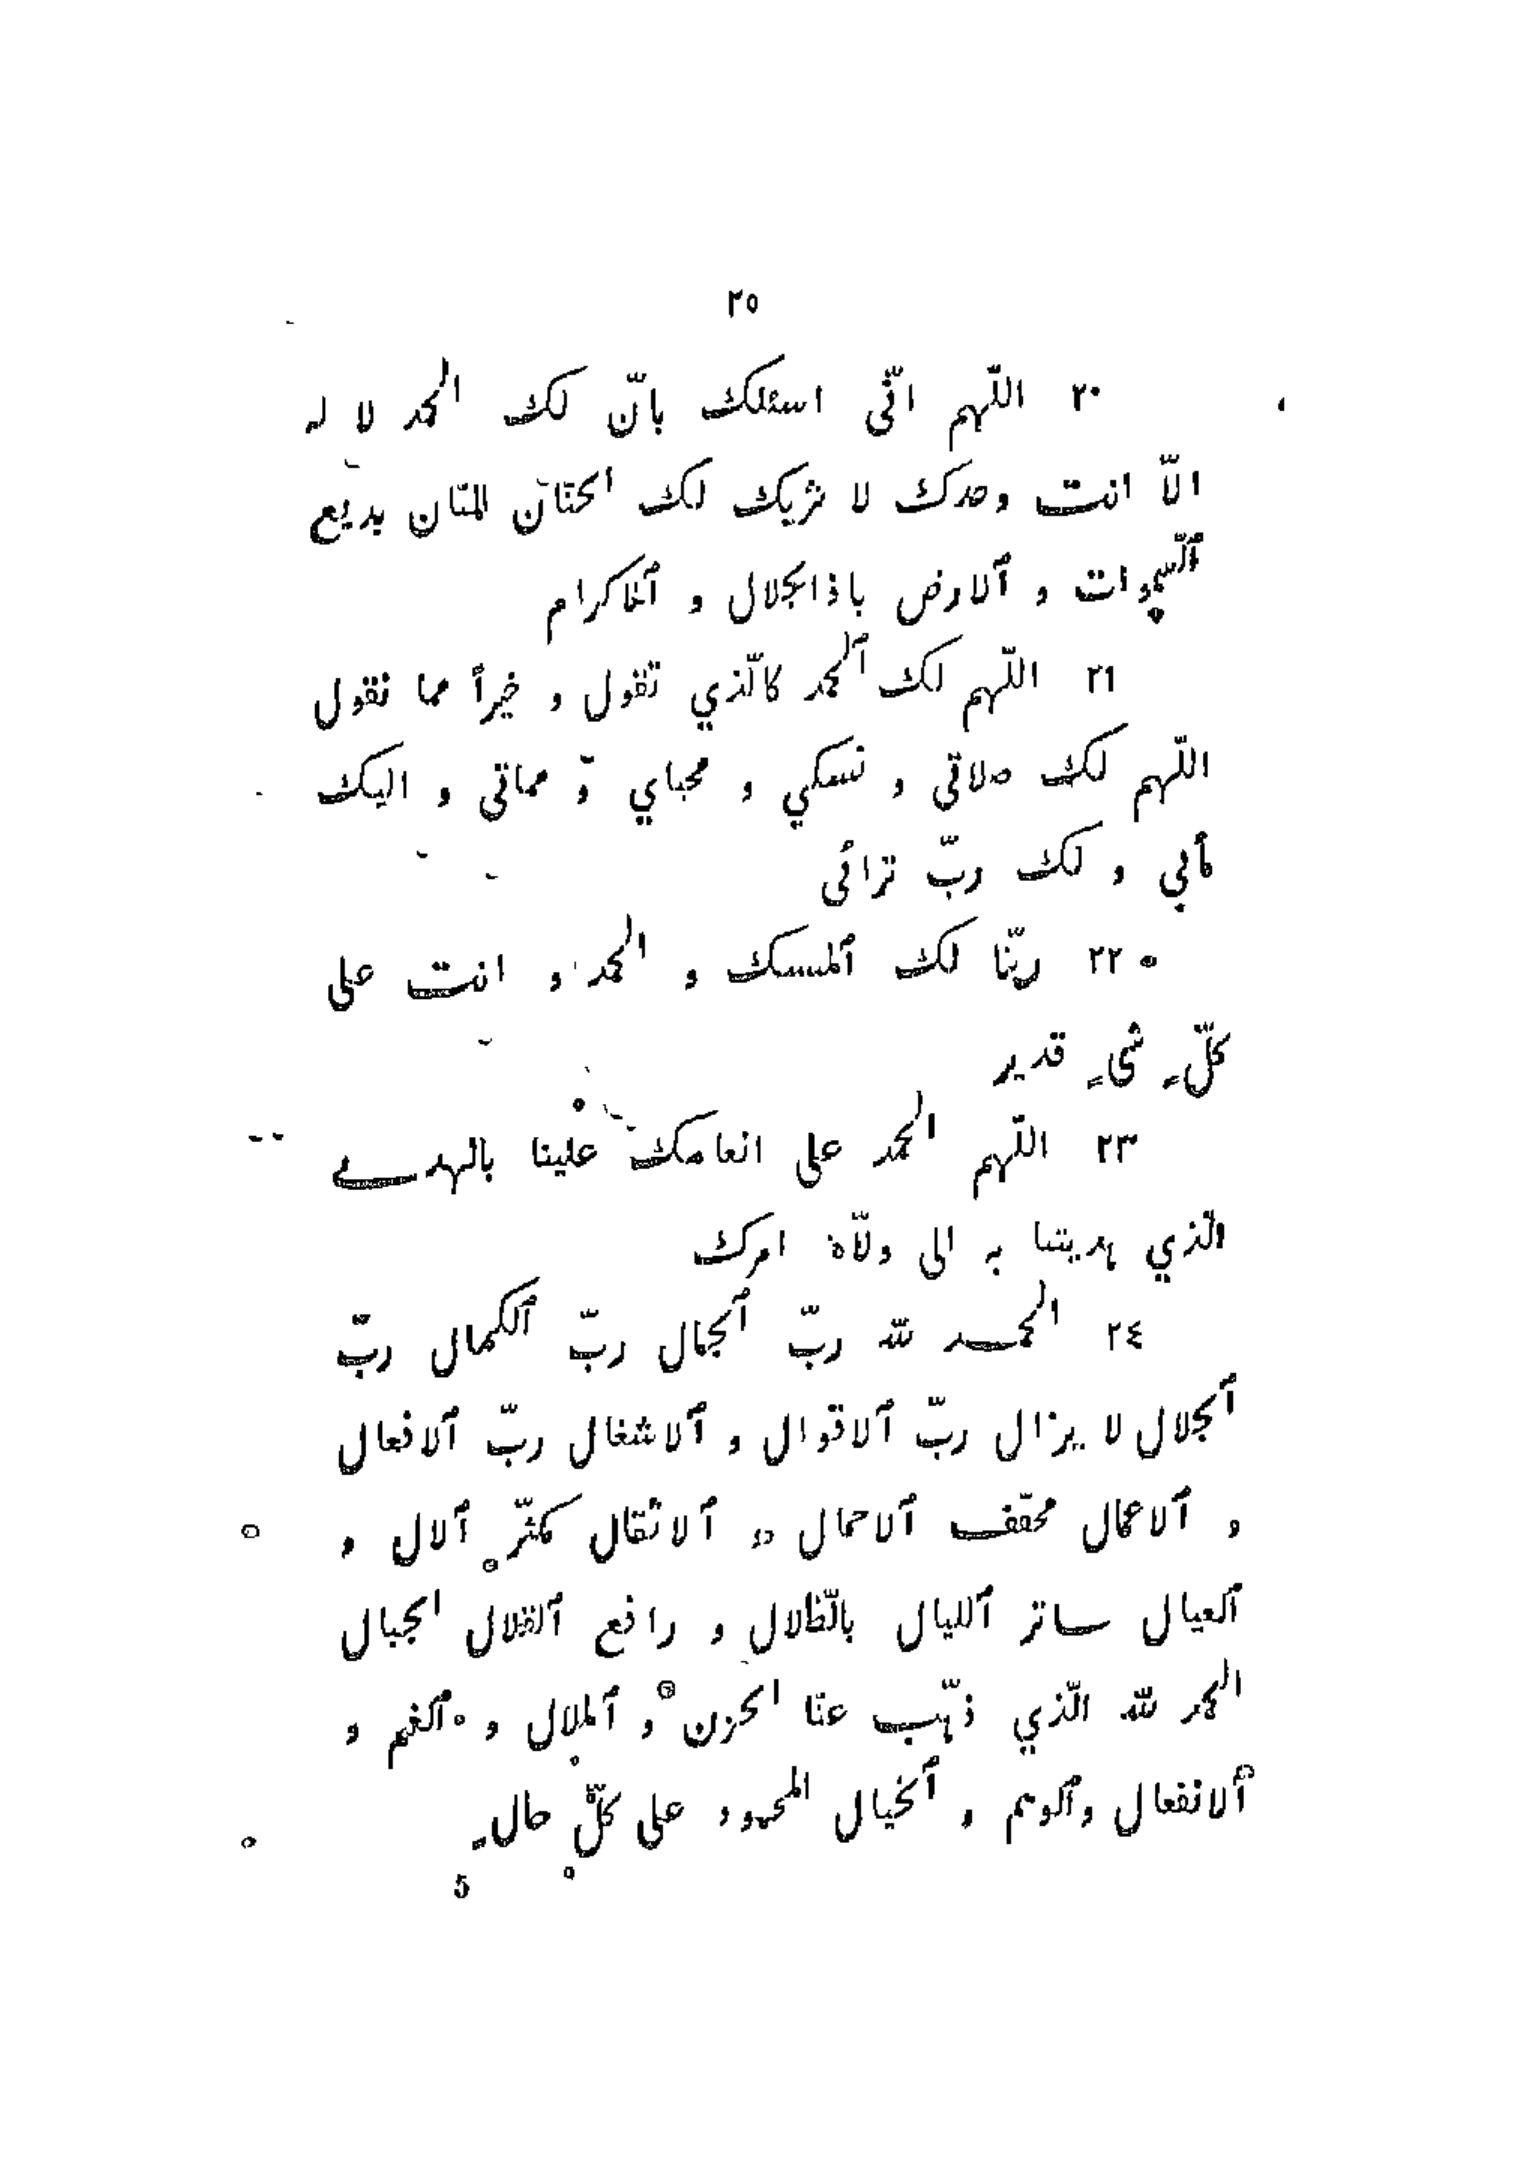 ٢٥
٢٠ اللّهم انّى اسئلك بانّ لك الحمد لا له
الّا انت وحدك لا شريك لك الحنّان المنّان بديع
ٱلسّموات و ٱلارض ياذا الجلال و ٱلاكرام
٢١ اللّهم لك ٱلحمد كالّذي تقول و خيراً مما نقول
اللّهم لك صلاتى و نسكي و محياي و مماتى و اليك
مأبي و لك ربّ تراثى
٢٢ ربّنا لك ٱلمسك و الحمد و انت على
كلّ شىٍ قدير
٢٣ اللّهم الحمد على انعامك علينا بالهدے
الّذي هديتنا به الى ولّاة امرك
٢٤ الحمد لله ربّ ٱلجمال ربّ ٱلكمال ربّ
ٱلجلال لا يزال ربّ ٱلاقوال و ٱلاشغال ربّ ٱلافعال
و ٱلاعمال مخفّف ٱلاحمال و ٱلاثقال مكثّر ٱلال و
ٱلعيال ساتر ٱلليال بالظّلال و رافع ٱلقلال الجبال
الحمد لله الّذي ذهّب عنّا الحزن و ٱلملال و ٱلغم و
ٱلانفعال وٱلوهم و ٱلخيال المحمود على كلّ حالٍ
5